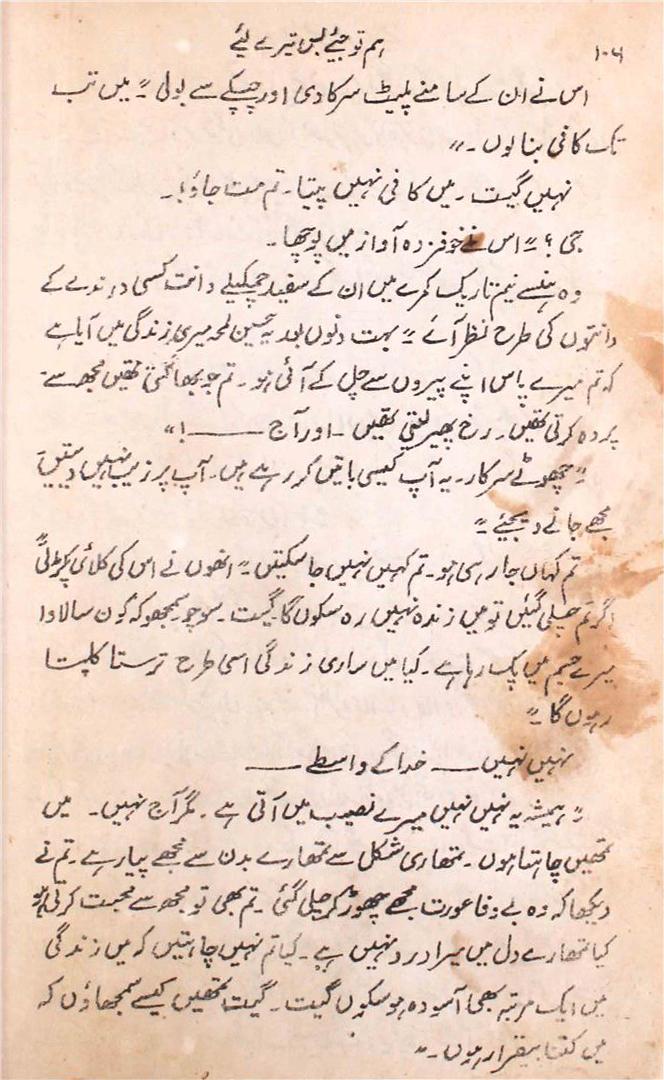 ۱۰۶
ہم تو جیئے بس تیرے لئے
اس نے ان کے سامنے پلیٹ سرکا دی اور چپکے سے بولی "میں تب
تک کافی بنا لوں۔"
نہیں گیت۔ میں کافی نہیں پیتا۔ تم مت جاؤ!۔
جی؟" اس نے خوفزدہ آواز میں پوچھا۔
وہ ہنسے نیم تاریک کمرے میں ان کے سفید چمکیلے دانت کسی درندے کے
دانتوں کی طرح نظر آئے "بہت دنوں بعد یہ حسین لمحہ میری زندگی میں آیا ہے
کہ تم میرے پاس اپنے پیروں سے چل کے آئی ہو۔ تم جو بھاگتی تھیں مجھ سے۔
پردہ کرتی تھیں۔ رخ پھیر لیتی تھیں۔ اور آج ———!"
"چھوٹے سرکار۔ یہ آپ کیسی باتیں کر رہے ہیں۔ آپ پر زیب نہیں دیتیں
مجھے جانے دیجیئے"
تم کہاں جا رہی ہو۔ تم کہیں نہیں جا سکتیں۔" انھوں نے اس کی کلائی پکڑ لی"
اگر تم چلی گئیں تو میں زندہ نہیں رہ سکوں گا گیت۔ سوچو سمجھو کہ کون سا لاوا
میرے جسم میں پک رہا ہے۔ کیا میں ساری زندگی اسی طرح ترستا کلپتا
رہوں گا۔"
نہیں نہیں —— خدا کے واسطے ——
"ہمیشہ یہ نہیں نہیں میرے نصیب میں آتی ہے۔ مگر آج نہیں۔ میں
تمھیں چاہتا ہوں۔ تمھاری شکل سے تمھارے بدن سے مجھے پیار ہے۔ تم نے
دیکھا کہ وہ بے وفا عورت مجھے چھوڑ کر چلی گئی۔ تم بھی تو مجھ سے محبت کرتی ہو
کیا تمھارے دل میں میرا درد نہیں ہے۔ کیا تم نہیں چاہتیں کہ میں زندگی
میں ایک مرتبہ بھی آسودہ ہو سکوں گیت۔ گیت تمھیں کیسے سمجھاؤں کہ
میں کتنا بیقرار ہوں۔"